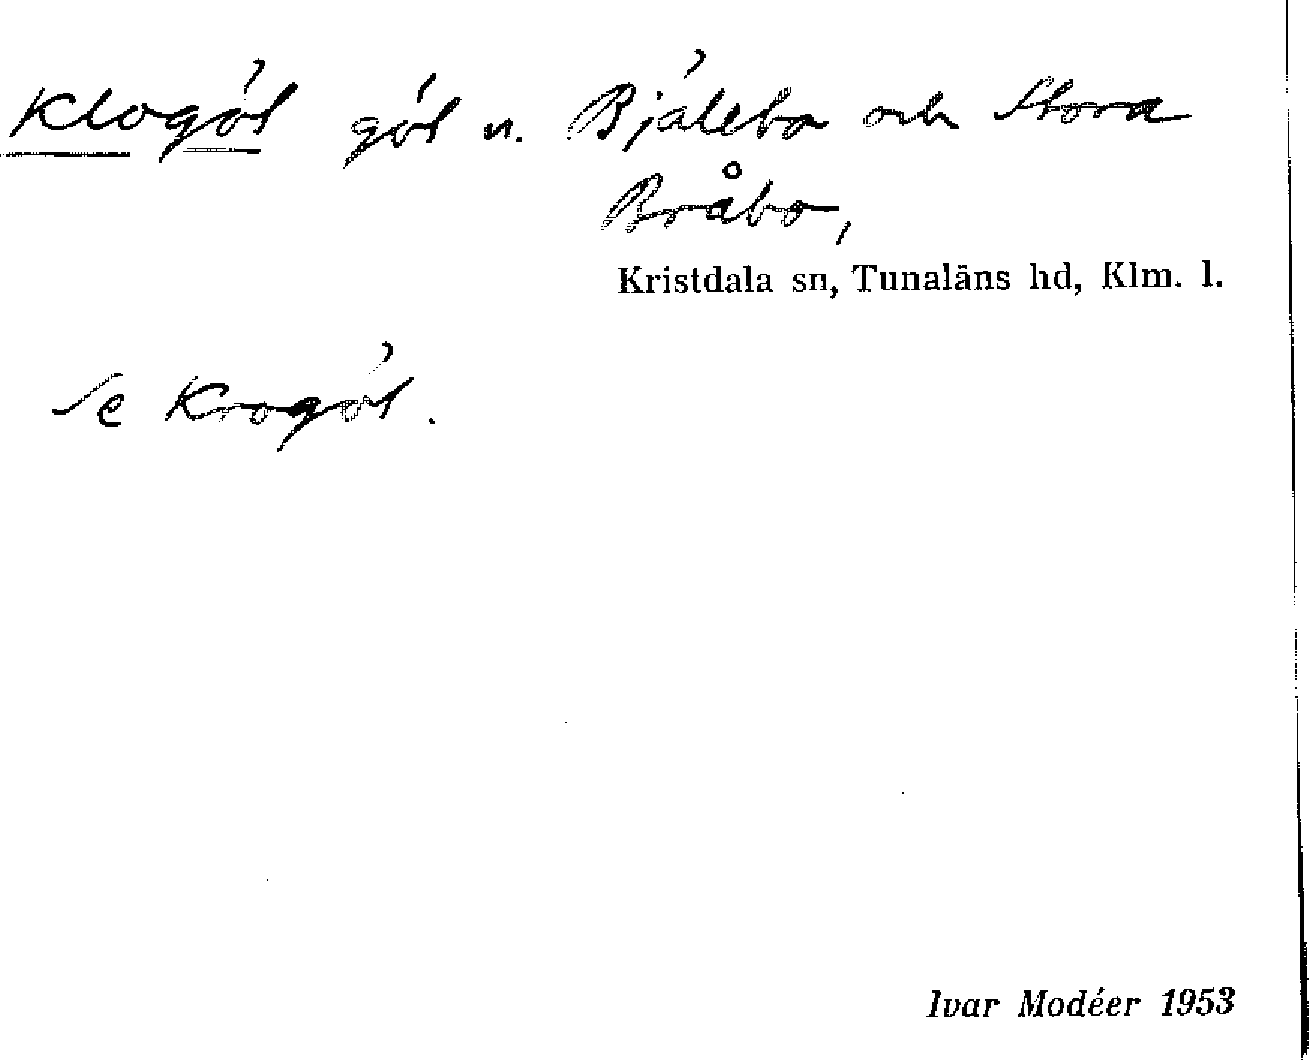 Klogöl göl n. Bjälebo och Stora
Bråbo,
Kristdala sn, Tunaläns hd, Klm. l.
Se Krogöl.
Ivar Modéer 1953